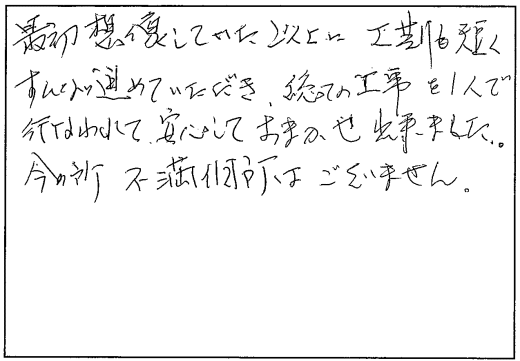 最初想像していた以上に工期も短く
すんなり進めていただき、総ての工事を1人で
行なわれて、安心しておまかせ出来ました。
今の所不満個所はございません。